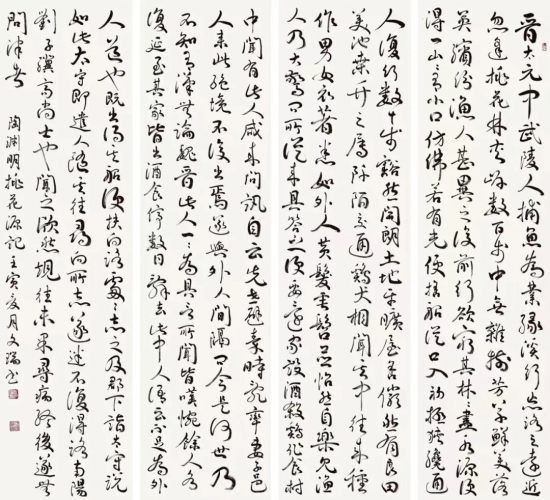 晉太元中武陵人捕魚為業緣溪行忘路之遠近
忽逢桃花林夾岸數百步中無雜樹芳草鮮美落
英繽紛漁人甚異之復前行欲窮其林林盡水源便
得一山山有小口仿佛若有光便捨船從口入初極狹纔通
人復行數十步豁然開朗土地平曠屋舍儼然有良田
美池桑竹之屬阡陌交通鷄犬相聞其中往來種
作男女衣著悉如外人黃髮垂髫並怡然自樂見漁
人乃大驚問所從來具答之便要還家設酒殺鷄作食村
中聞有此人咸來問訊自云先世避秦時亂率妻子邑
人來此絕境不復出焉遂與外人間隔問今是何世乃
不知有漢無論魏晉此人一一為具言所聞皆嘆惋餘人各
復延至其家皆出酒食停數日辭去此中人語云不足為外
人道也既出得其船便扶向路處處志之及郡下詣太守說
如此太守即遣人隨其往尋向所志遂迷不復得路南陽
劉子驥高尚士也聞之欣然規往未果尋病終後遂無
問津者 陶淵明桃花源記 壬寅夏月文瑞書